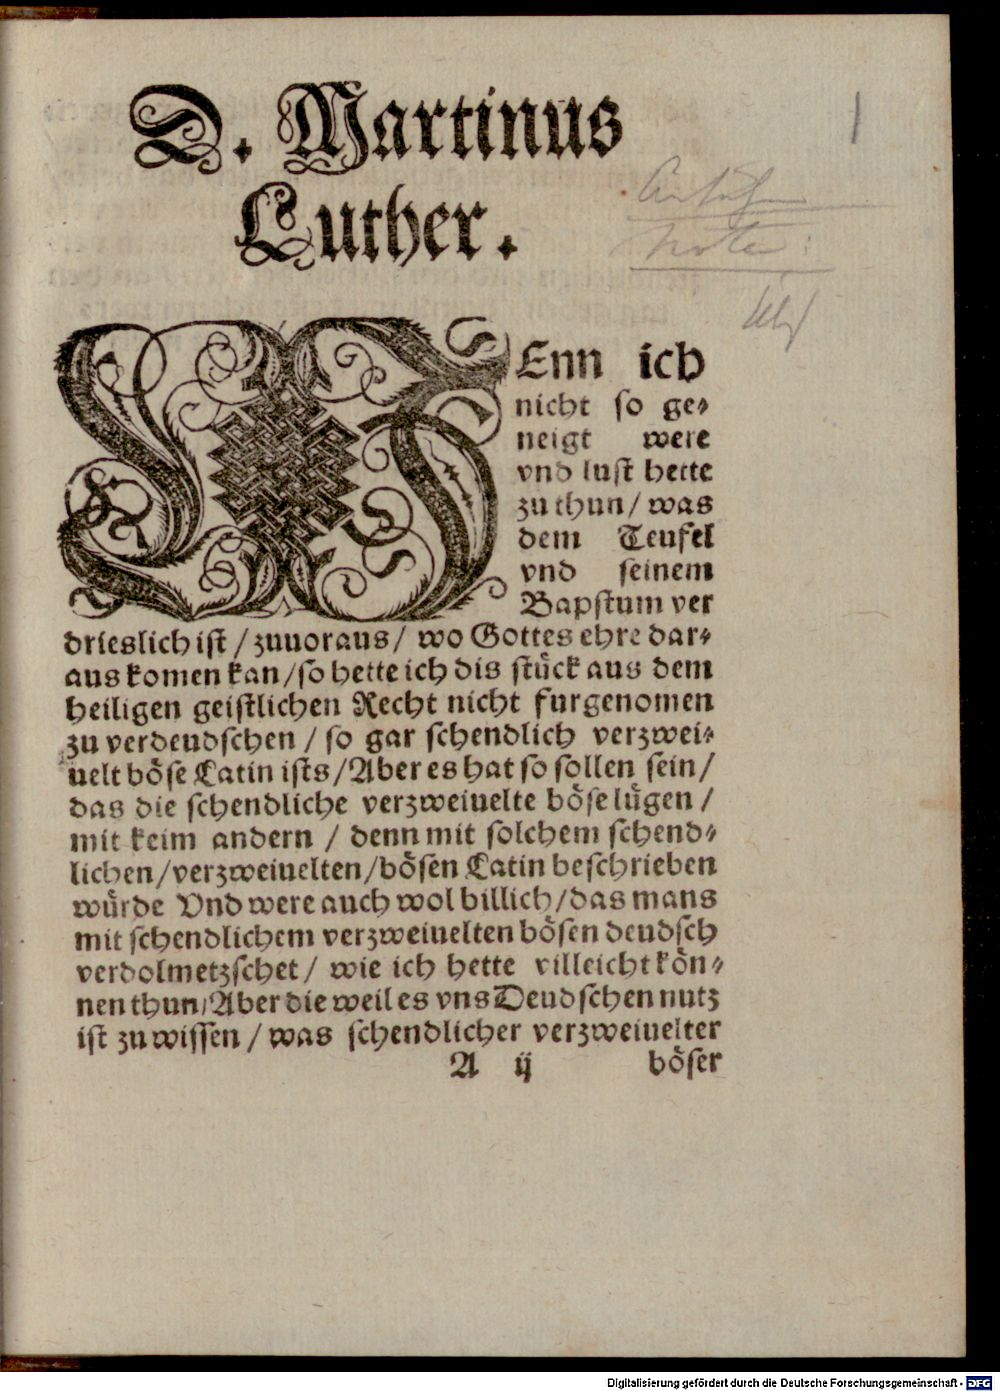 D. Martinus
Luther.
WEnn ich
nicht so ge⸗
neigt were
vnd lust hette
zu thun / was
dem Teufel
vnd seinem
Bapstum ver
drieslich ist / zuuoraus / wo Gottes ehre dar⸗
aus komen kan / so hette ich dis stück aus dem
heiligen geistlichen Recht nicht furgenomen
zu verdeudschen / so gar schendlich verzwei⸗
uelt böse Latin ists / Aber es hat so sollen sein /
das die schendliche verzweiuelte böse lügen /
mit keim andern / denn mit solchem schend⸗
lichen / verzweiuelten / bösen Latin beschrieben
würde Vnd were auch wol billich / das mans
mit schendlichem verzweiuelten bösen deudsch
verdolmetzschet / wie ich hette villeicht kön⸗
nen thun / Aber die weil es vns Deudschen nutz
ist zu wissen / was schendlicher verzweiuelter
A ij böser
Digitalisierung gefördert durch die Deutsche Forschungsgemeinschaft - DFG